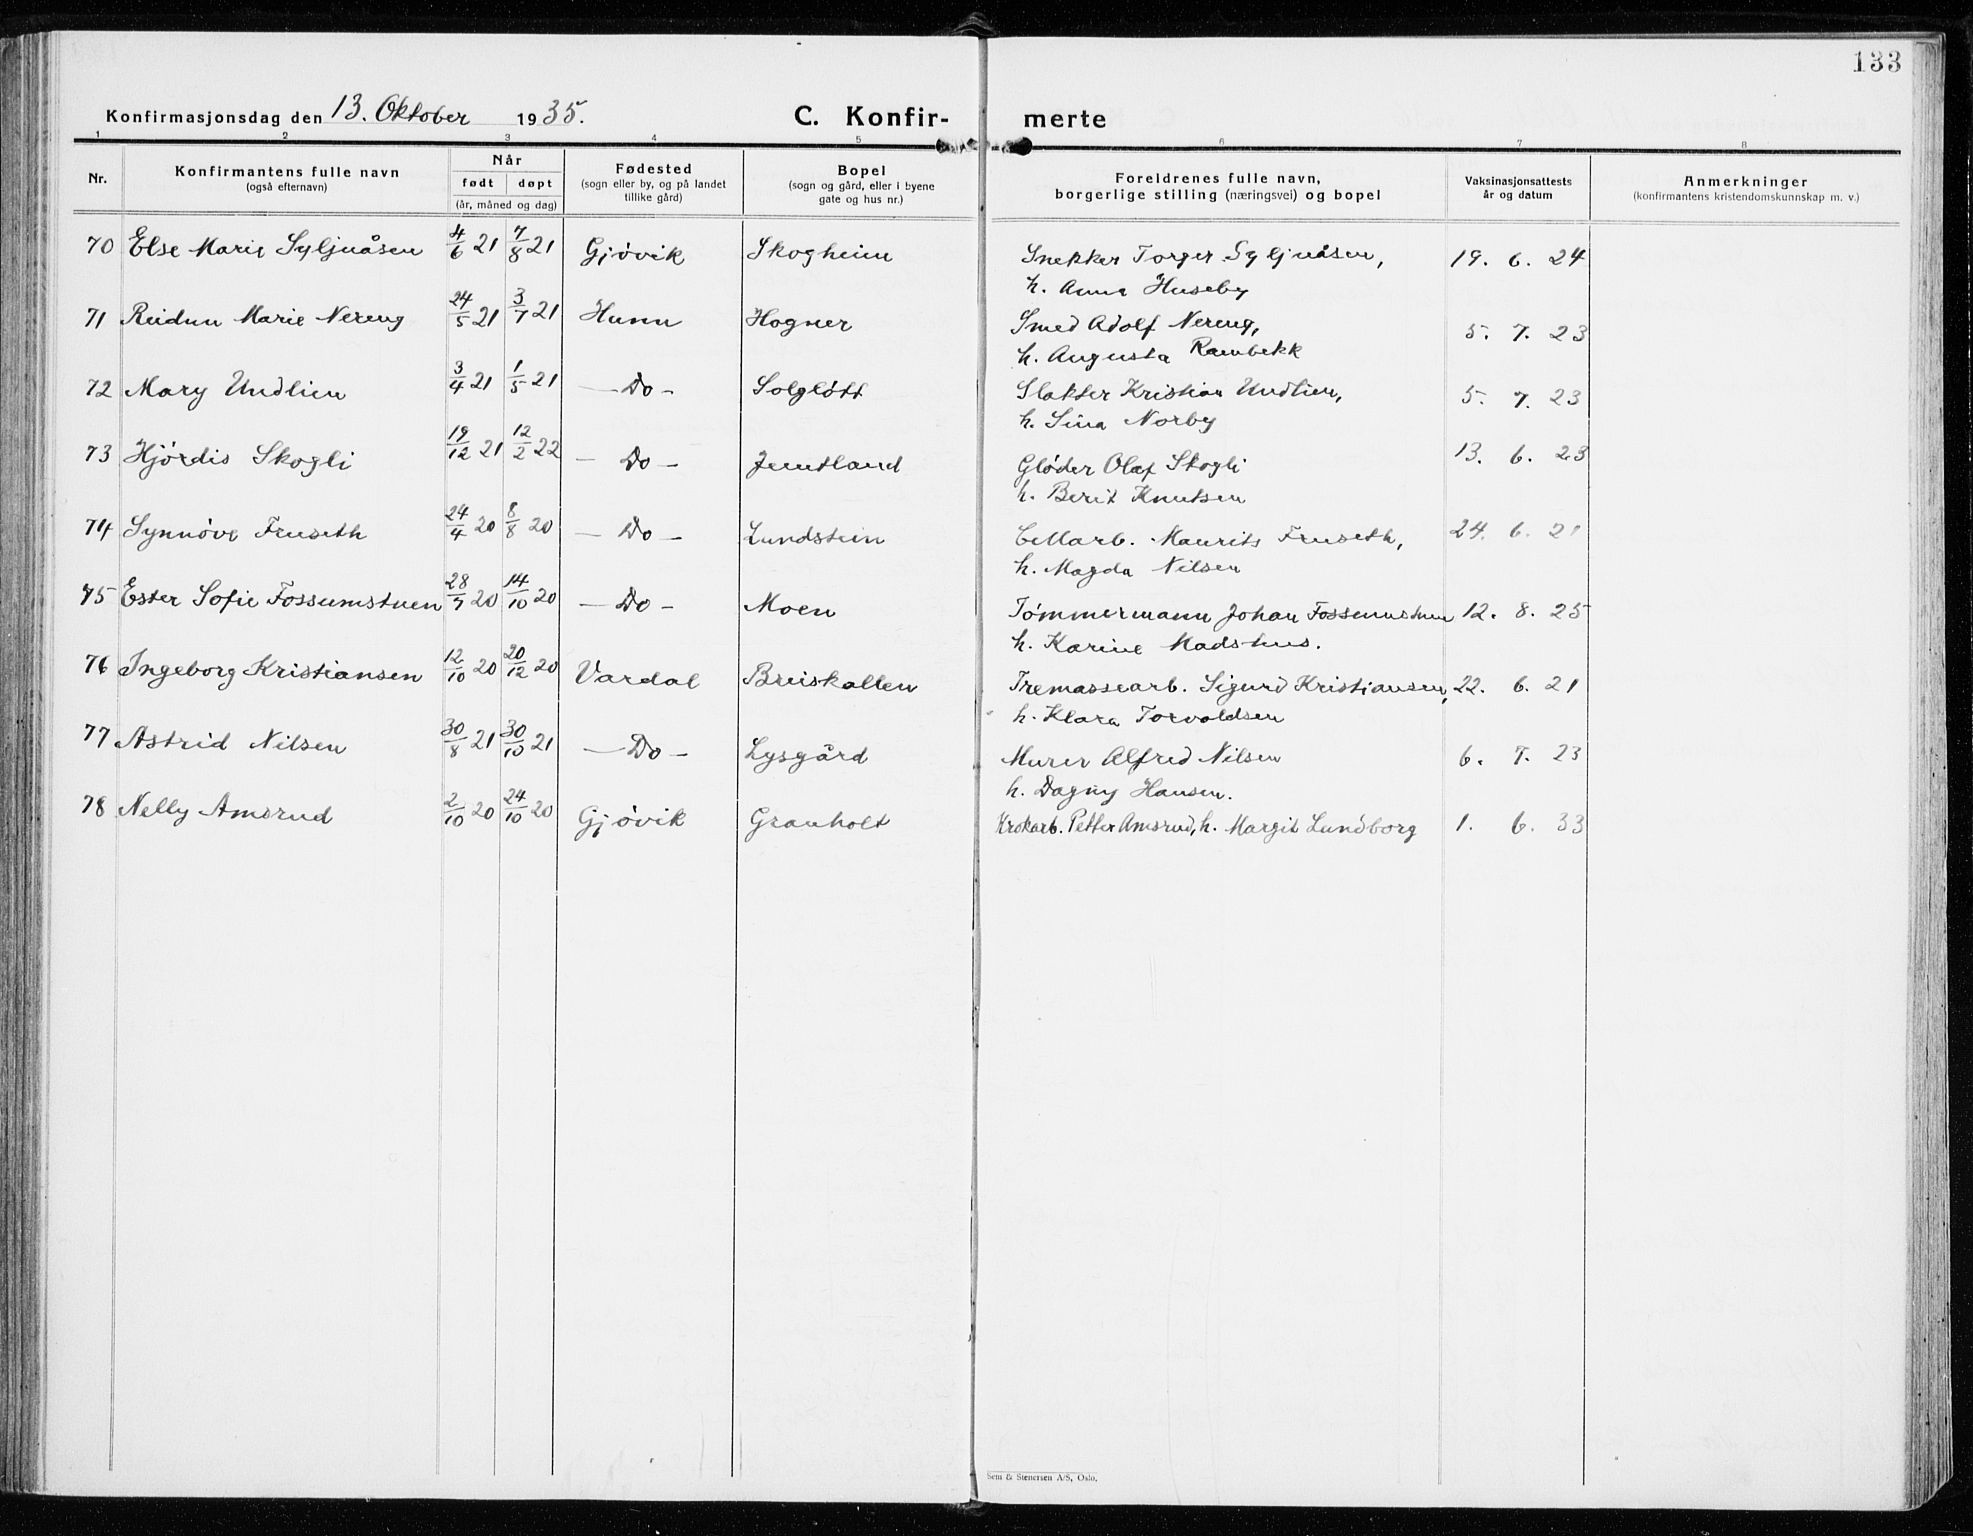 133
Konfirmasjonsdag den 13. Oktober 1935. C. Konfir- merte
1 2 3 4 5 6 7 8
Nr. Konfirmantens fulle navn (også efternavn) Når født døpt (år, måned og dag) Fødested (sogn eller by, og på landet tillike gård) Bopel (sogn og gård, eller i byene gate og hus nr.) Foreldrenes fulle navn, borgerlige stilling (næringsvei) og bopel Vaksinasjonsattests år og datum Anmerkninger (konfirmantens kristendomskunnskap m. v.)
70 Else Marie Syljuåsen 4/6 21 7/8 21 Gjøvik Skogheim Snekker Torger Syljuåsen, 19. 6. 24
h. Anna Huseby
71 Reidun Marie Nereng 24/5 21 3/7 21 Hunn Hogner Smed Adolf Nereng, 5. 7. 23
h. Augusta Rambekk
72 Mary Undlien 3/4 21 1/5 21 — Do - Solgløtt Slakter Kristian Undlien, 5. 7. 23
h. Sina Norby
73 Hjørdis Skogli 19/12 21 12/2 22 — Do - Jemtland Gløder Olaf Skogli 13. 6. 23
h. Berit Knutsen
74 Synnøve Fruseth 24/4 20 8/8 20 — Do - Lundstein Cellarb. Maurits Fruseth, 24. 6. 21
h. Magda Nilsen
75 Ester Sofie Fossumstuen 28/7 20 14/10 20 — Do - Moen Tømmermann Johan Fossumstuen 12. 8. 25
h. Karine Madshus.
76 Ingeborg Kristiansen 12/10 20 20/12 20 Vardal Breiskallen Tremassearb. Sigurd Kristiansen, 22. 6. 21
h. Klara Torvaldsen
77 Astrid Nilsen 30/8 21 30/10 21 — Do - Lysgård Murer Alfred Nilsen 6. 7. 23
h. Dagny Hansen.
78 Nelly Amsrud 2/10 20 24/10 20 Gjøvik Granholt Krokarb. Petter Amsrud, h. Margit Lundborg 1. 6. 33
Sem & Stenersen A/S, Oslo.